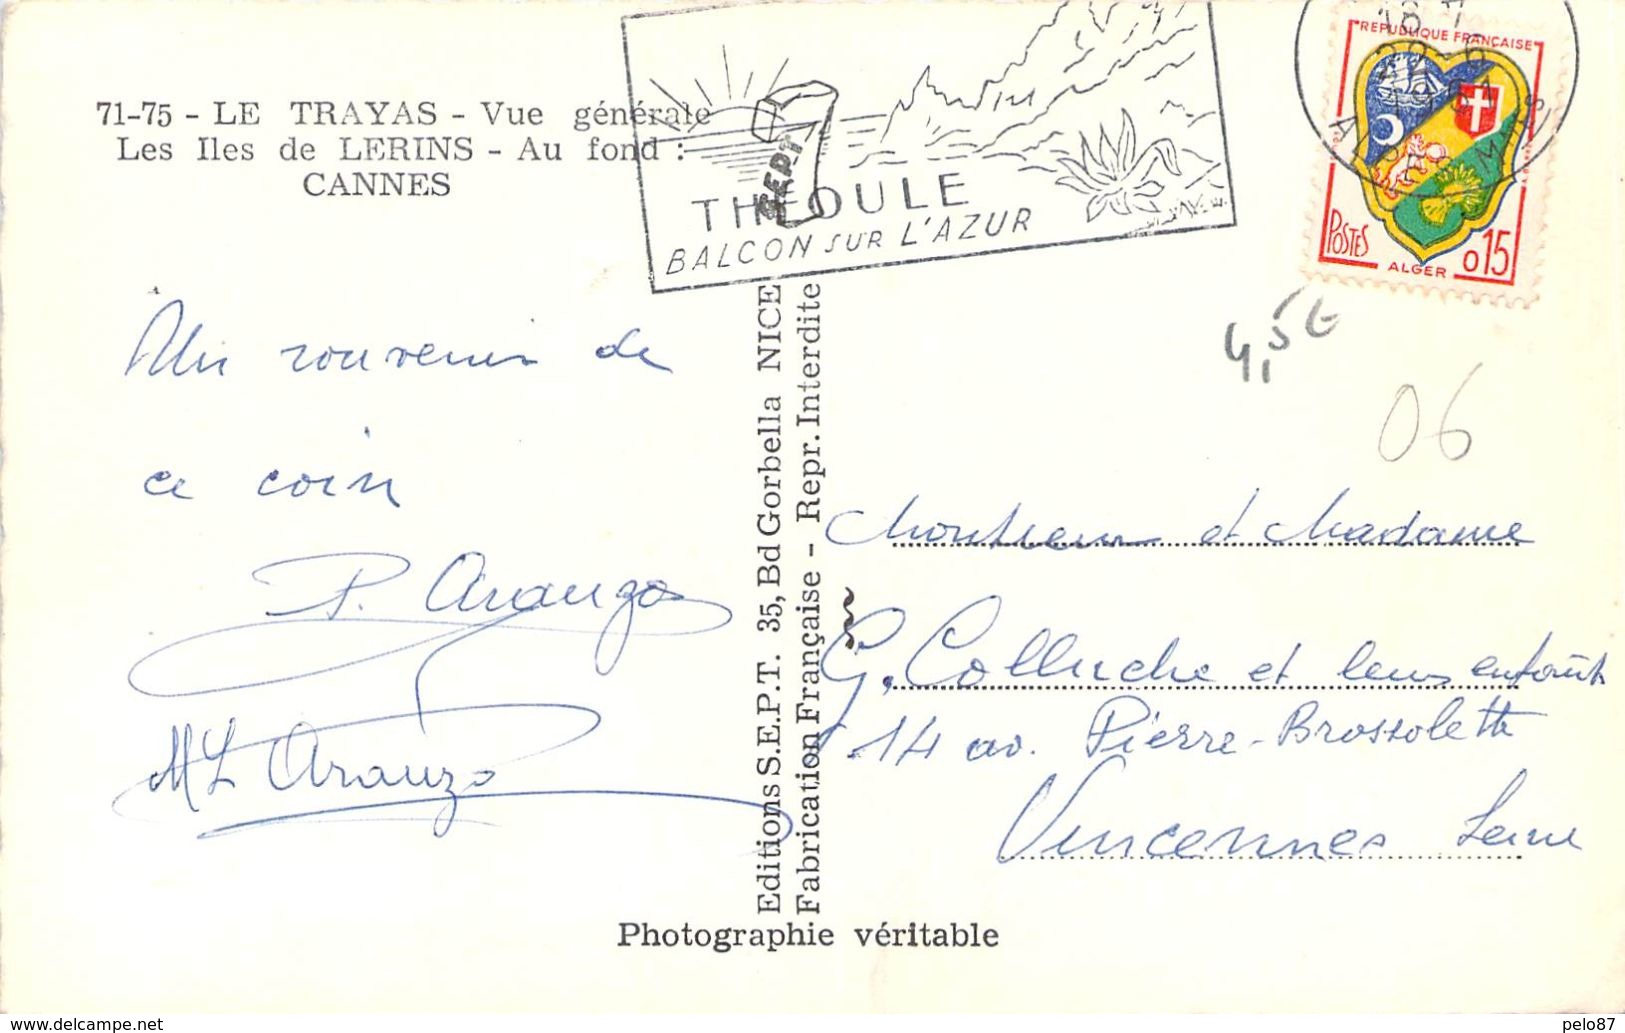 71-75 - LE TRAYAS - Vue générale
Les Iles de LERINS - Au fond :
CANNES
SEPT
THEOULE
BALCON SUR L'AZUR
REPUBLIQUE FRANÇAISE
POSTES
ALGER
0,15
4,5€
06
Un souvenir de
ce coin
P. Aranzo
ML Aranzo
Editions S.E.P.T. 35, Bd Gorbella NICE
Fabrication Française - Repr. Interdite
Monsieur et Madame
G. Colluche et leurs enfants
14 av. Pierre-Brossolette
Vincennes Seine
Photographie véritable
pelo87